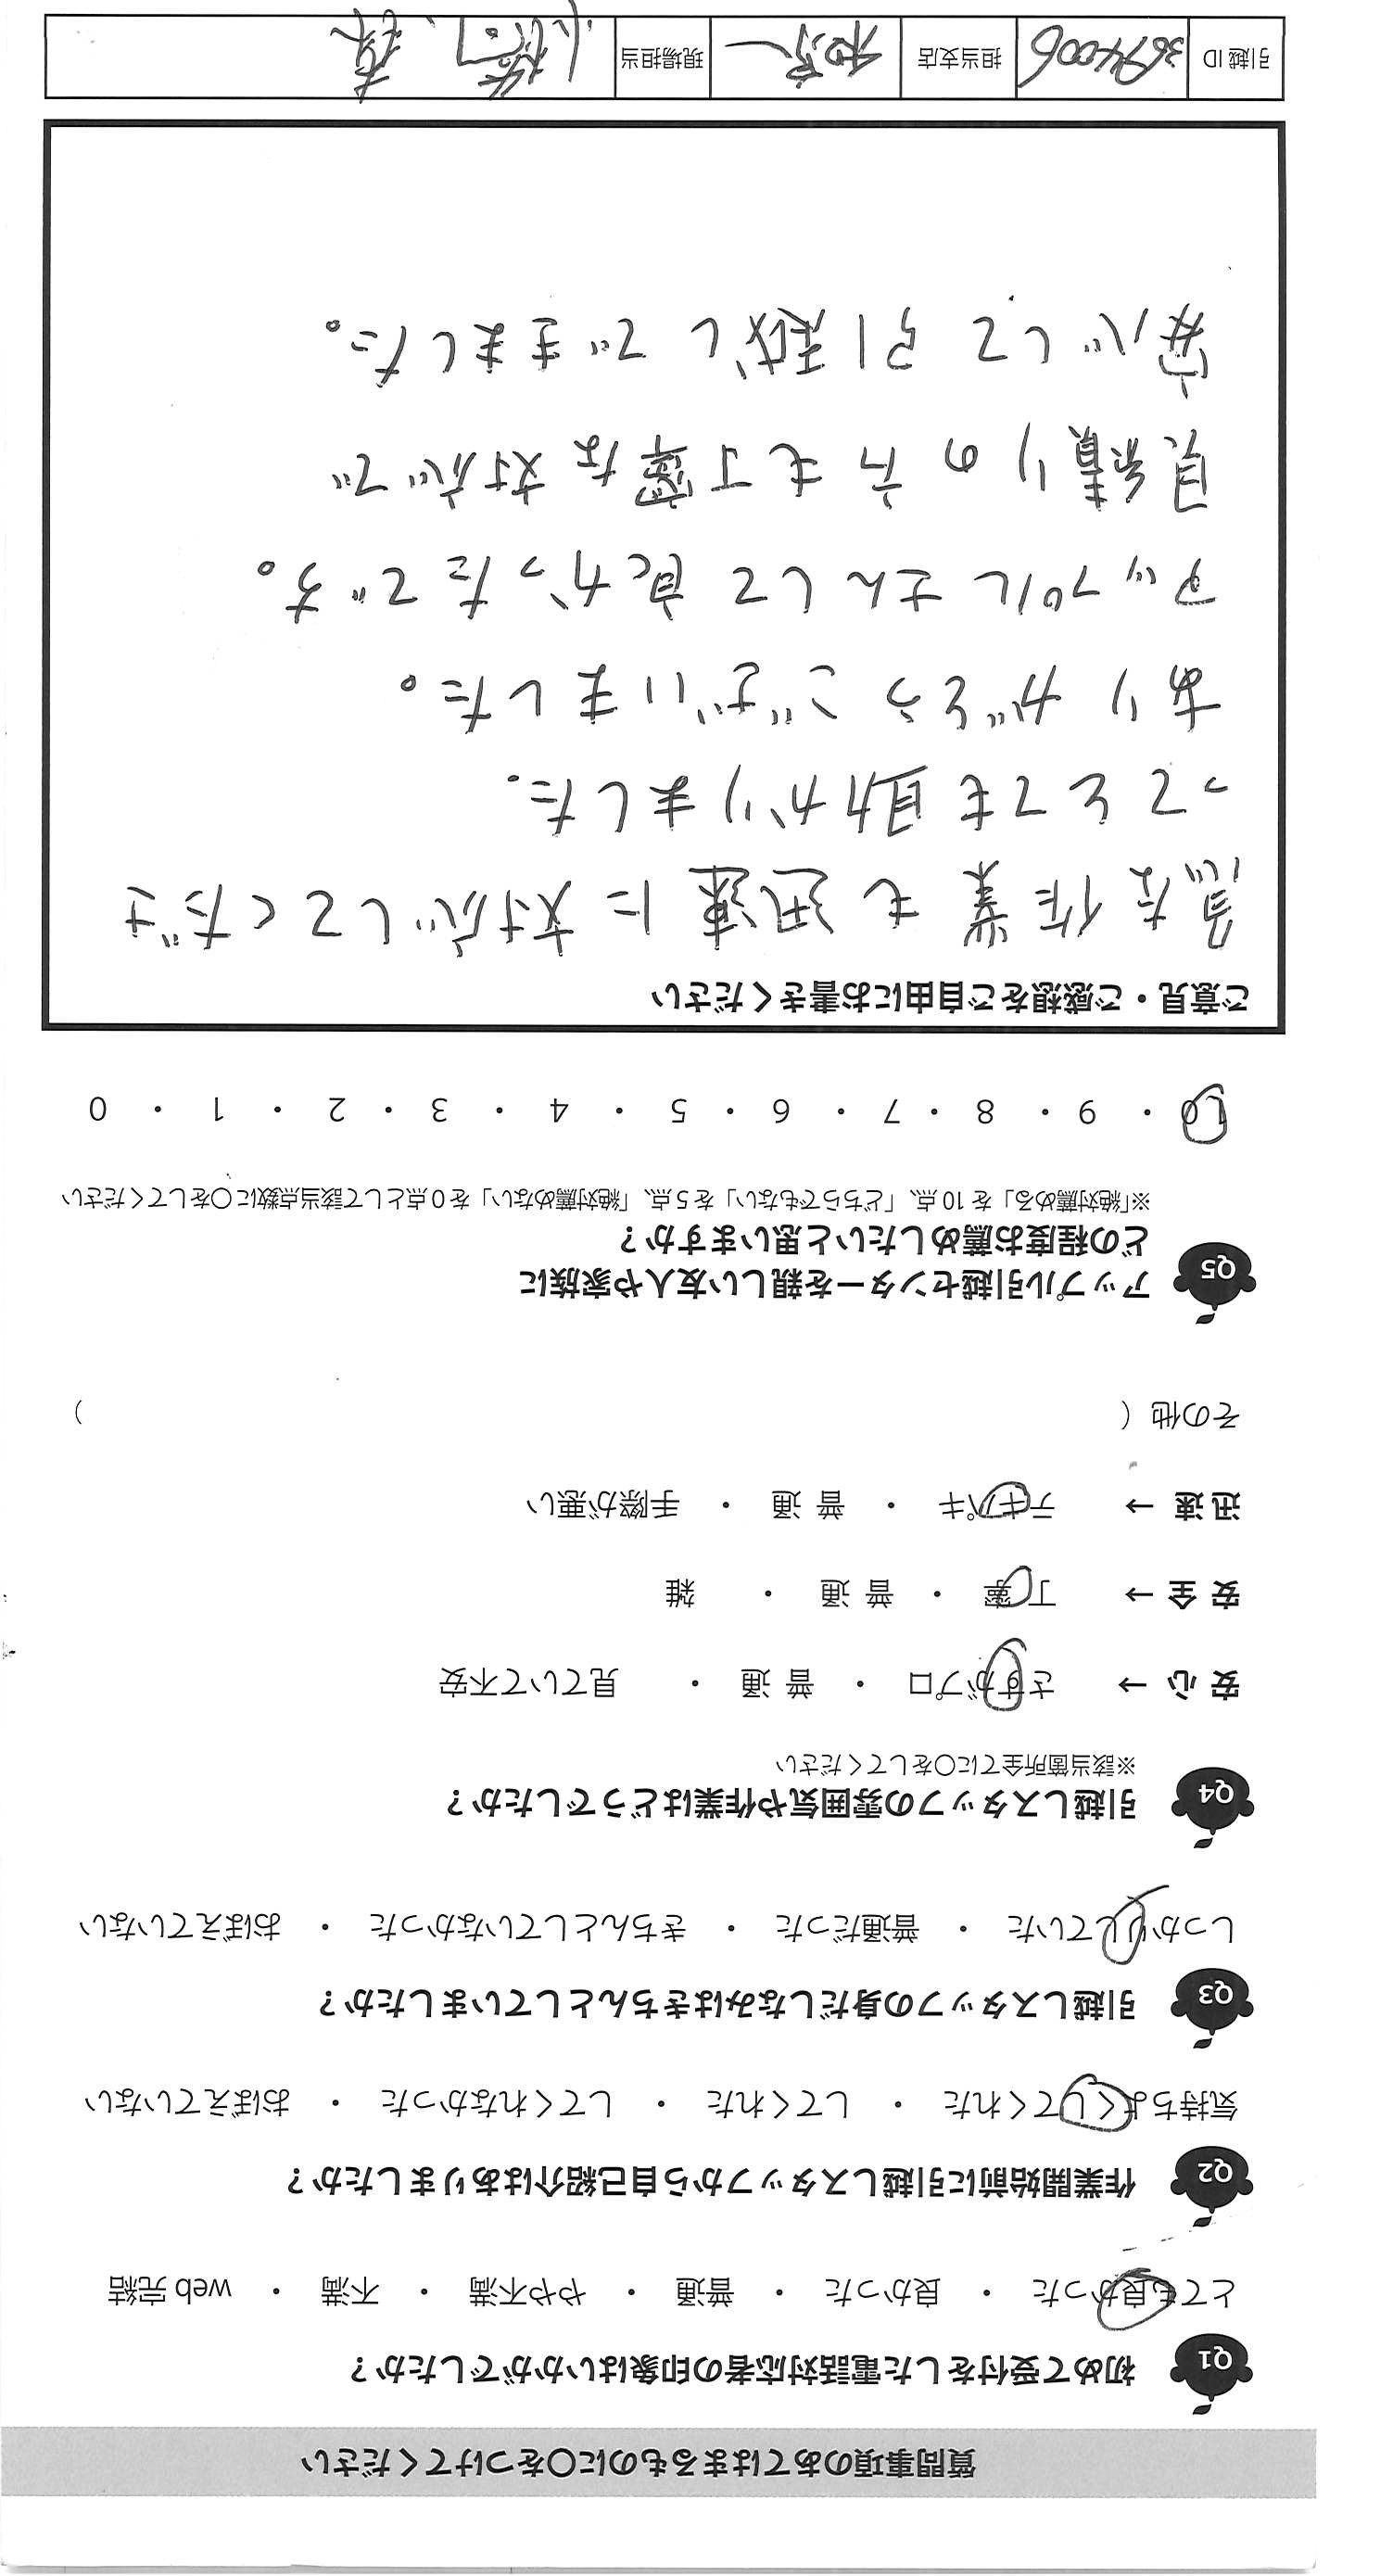 質問事項のあてはまるものに〇をつけてください
Q1 初めて受付をした電話対応者の印象はいかがでしたか？
とても良かった ・ 良かった ・ 普通 ・ やや不満 ・ 不満 ・ web 完結
Q2 作業開始前に引越しスタッフから自己紹介はありましたか？
気持ちよくしてくれた ・ してくれた ・ してくれなかった ・ おぼえていない
Q3 引越しスタッフの身だしなみはきちんとしていましたか？
しっかりしていた ・ 普通だった ・ きちんとしていなかった ・ おぼえていない
Q4 引越しスタッフの雰囲気や作業はどうでしたか？
※該当箇所全てに〇をしてください
安 心 → さすがプロ ・ 普 通 ・ 見ていて不安
安 全 → 丁 寧 ・ 普 通 ・ 雑
迅 速 → テキパキ ・ 普 通 ・ 手際が悪い
その他（ ）
Q5 アップル引越センターを親しい友人や家族に
どの程度お薦めしたいと思いますか？
※「絶対薦める」を 10 点、「どちらでもない」を 5 点、「絶対薦めない」を 0 点として該当点数に〇をしてください
10 ・ 9 ・ 8 ・ 7 ・ 6 ・ 5 ・ 4 ・ 3 ・ 2 ・ 1 ・ 0
ご意見・ご感想をご自由にお書きください
急な作業も迅速に対応してくださ
ってとても助かりました.
ありがとうございました。
アップルさんして良かったです。
見積りの方も丁寧な対応で
安心して引越しできました。
引越 ID 3694006 担当支店 現場担当